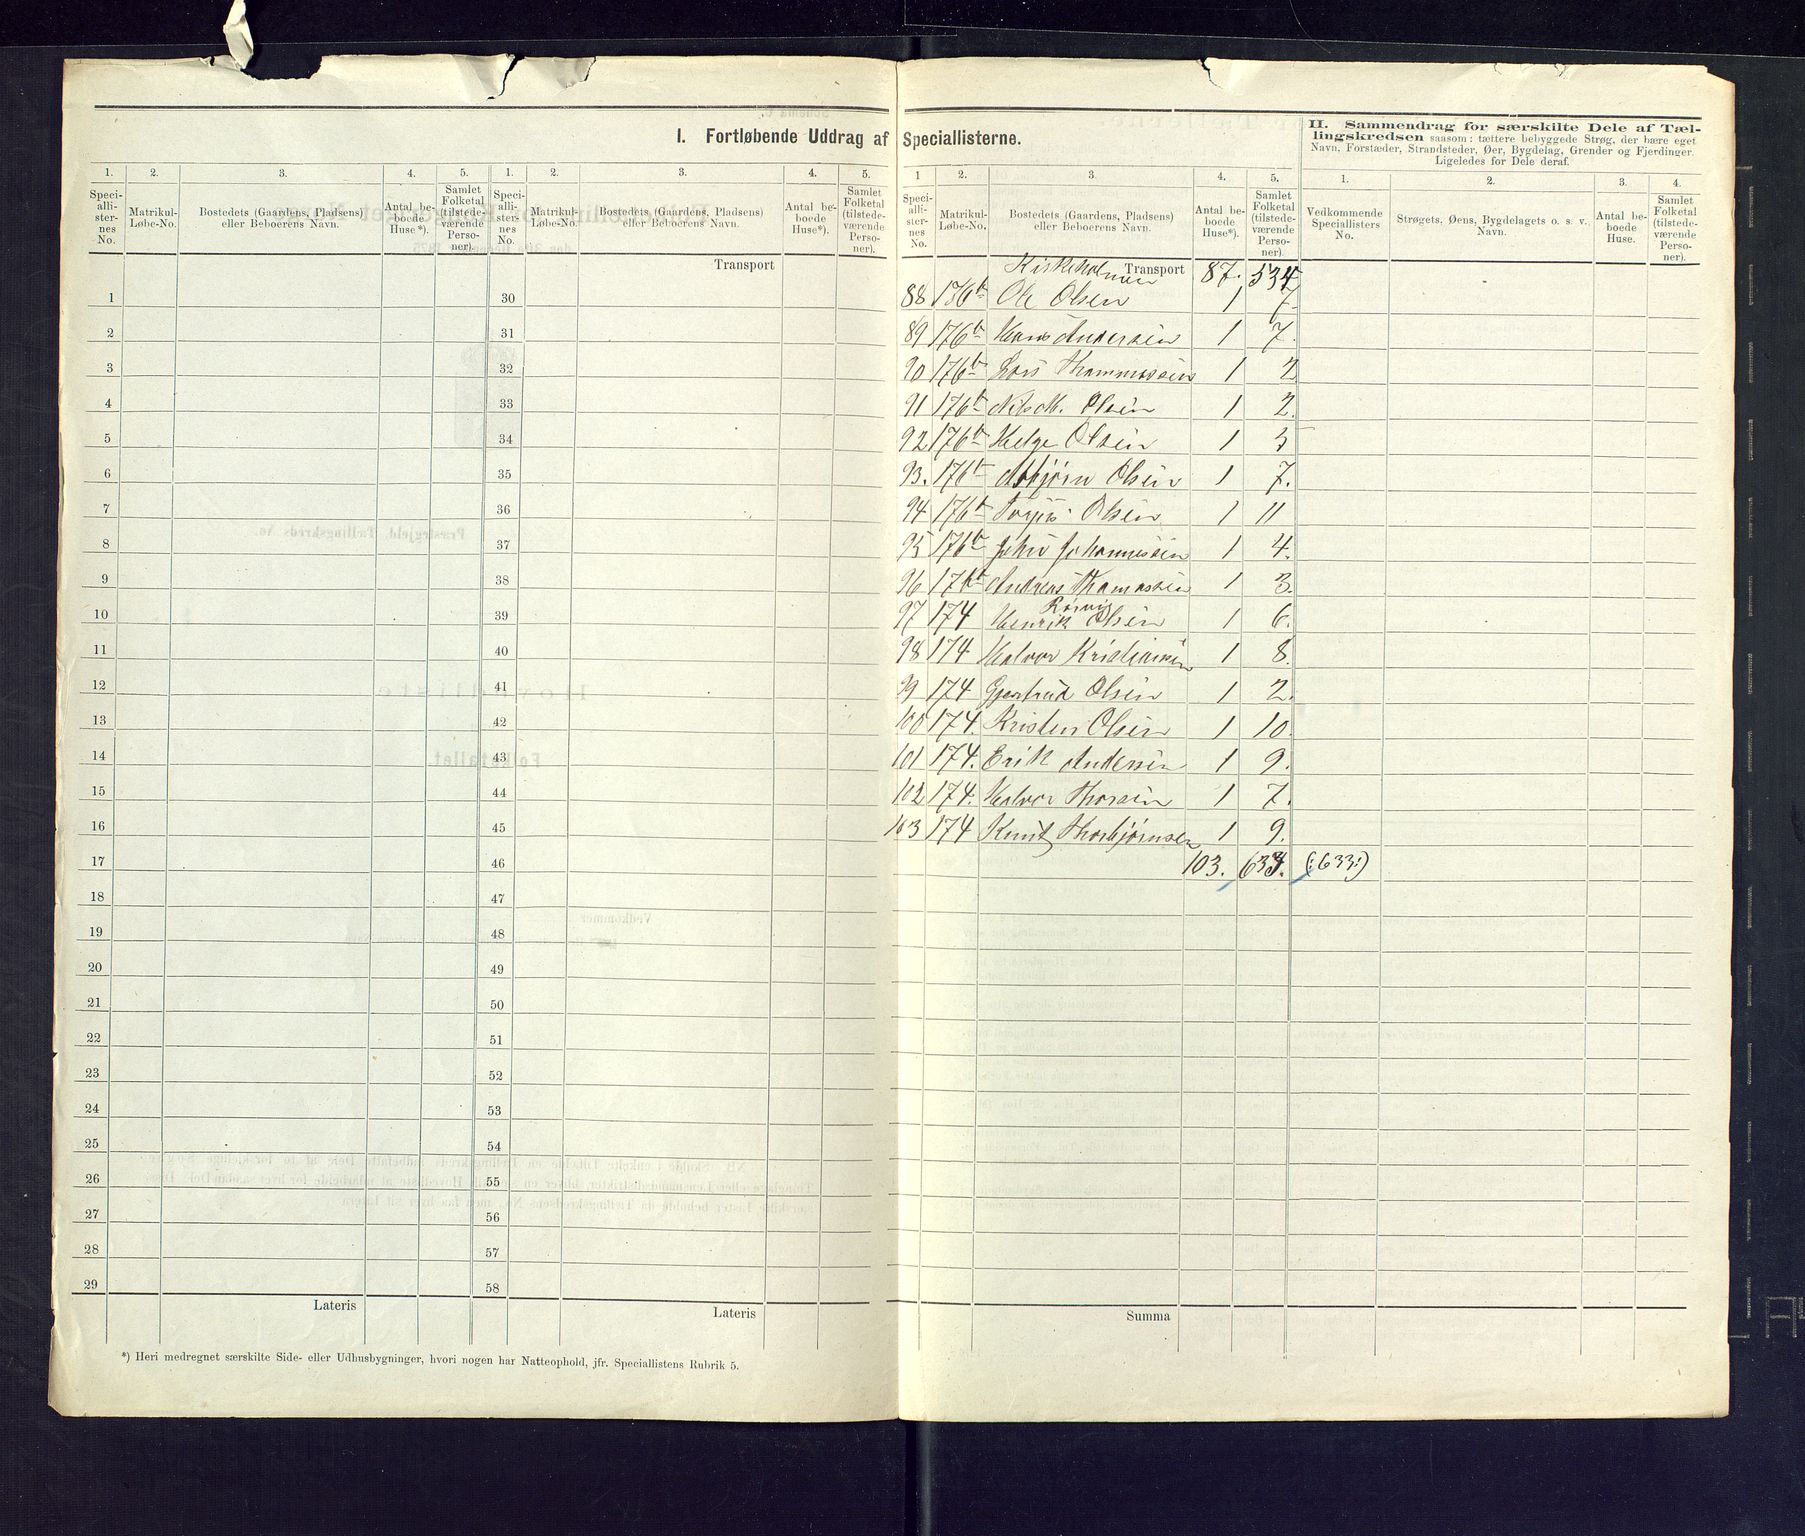 I. Fortløbende Uddrag af Speciallisterne.
1. 2. 3. 4. 5. 1. 2. 3. 4. 5.
Speciallisternes No. Matrikul-Løbe-No. Bostedets (Gaardens, Pladsens) eller Beboerens Navn. Antal beboede Huse*). Samlet Folketal (tilstedeværende Personer).
Speciallisternes No. Matrikul-Løbe-No. Bostedets (Gaardens, Pladsens) eller Beboerens Navn. Antal beboede Huse*). Samlet Folketal (tilstedeværende Personer).
Transport
1 30
2 31
3 32
4 33
5 34
6 35
7 36
8 37
9 38
10 39
11 40
12 41
13 42
14 43
15 44
16 45
17 46
18 47
19 48
20 49
21 50
22 51
23 52
24 53
25 54
26 55
27 56
28 57
29 58
Lateris Lateris
*) Heri medregnet særskilte Side- eller Udhusbygninger, hvori nogen har Natteophold, jfr. Speciallistens Rubrik 5.
1 2. 3. 4. 5.
Speciallisternes No. Matrikul-Løbe-No. Bostedets (Gaardens, Pladsens) eller Beboerens Navn. Antal beboede Huse*). Samlet Folketal (tilstedeværende Personer).
Kirkeholmen Transport 87. 534
88 176b Ole Olsen 1 7
89 176b Hans Andersen 1 7.
90 176b Lars Thommassen 1 2
91 176b Olsen 1 2.
92 176b Helge Olsen 1 5
93. 176b Asbjørn Olsen 1 7.
94 176b Olsen 1 11
95 176b John Johannessen 1 4.
96 176b Andreas Thomassen 1 3.
Rørvig
97 174 Henrik Olsen 1 6.
98 174 Halvor Kristiansen 1 8.
99 174 Gjertrud Olsen 1 2.
100 174. Kristen Olsen 1 10.
101 174. Erik Andersen 1 9.
102 174. Halvor Thorsen 1 7.
103 174 Knut Thorbjørnsen 1 9.
103. 633. (:633:)
Summa
II. Sammendrag for særskilte Dele af Tællingskredsen saasom: tættere bebyggede Strøg, der bære eget Navn, Forstæder, Strandsteder, Øer, Bygdelag, Grender og Fjerdinger. Ligeledes for Dele deraf.
1. 2. 3. 4.
Vedkommende Speciallisters No. Strøgets, Øens, Bygdelagets o. s. v. Navn. Antal beboede Huse. Samlet Folketal (tilstedeværende Personer).